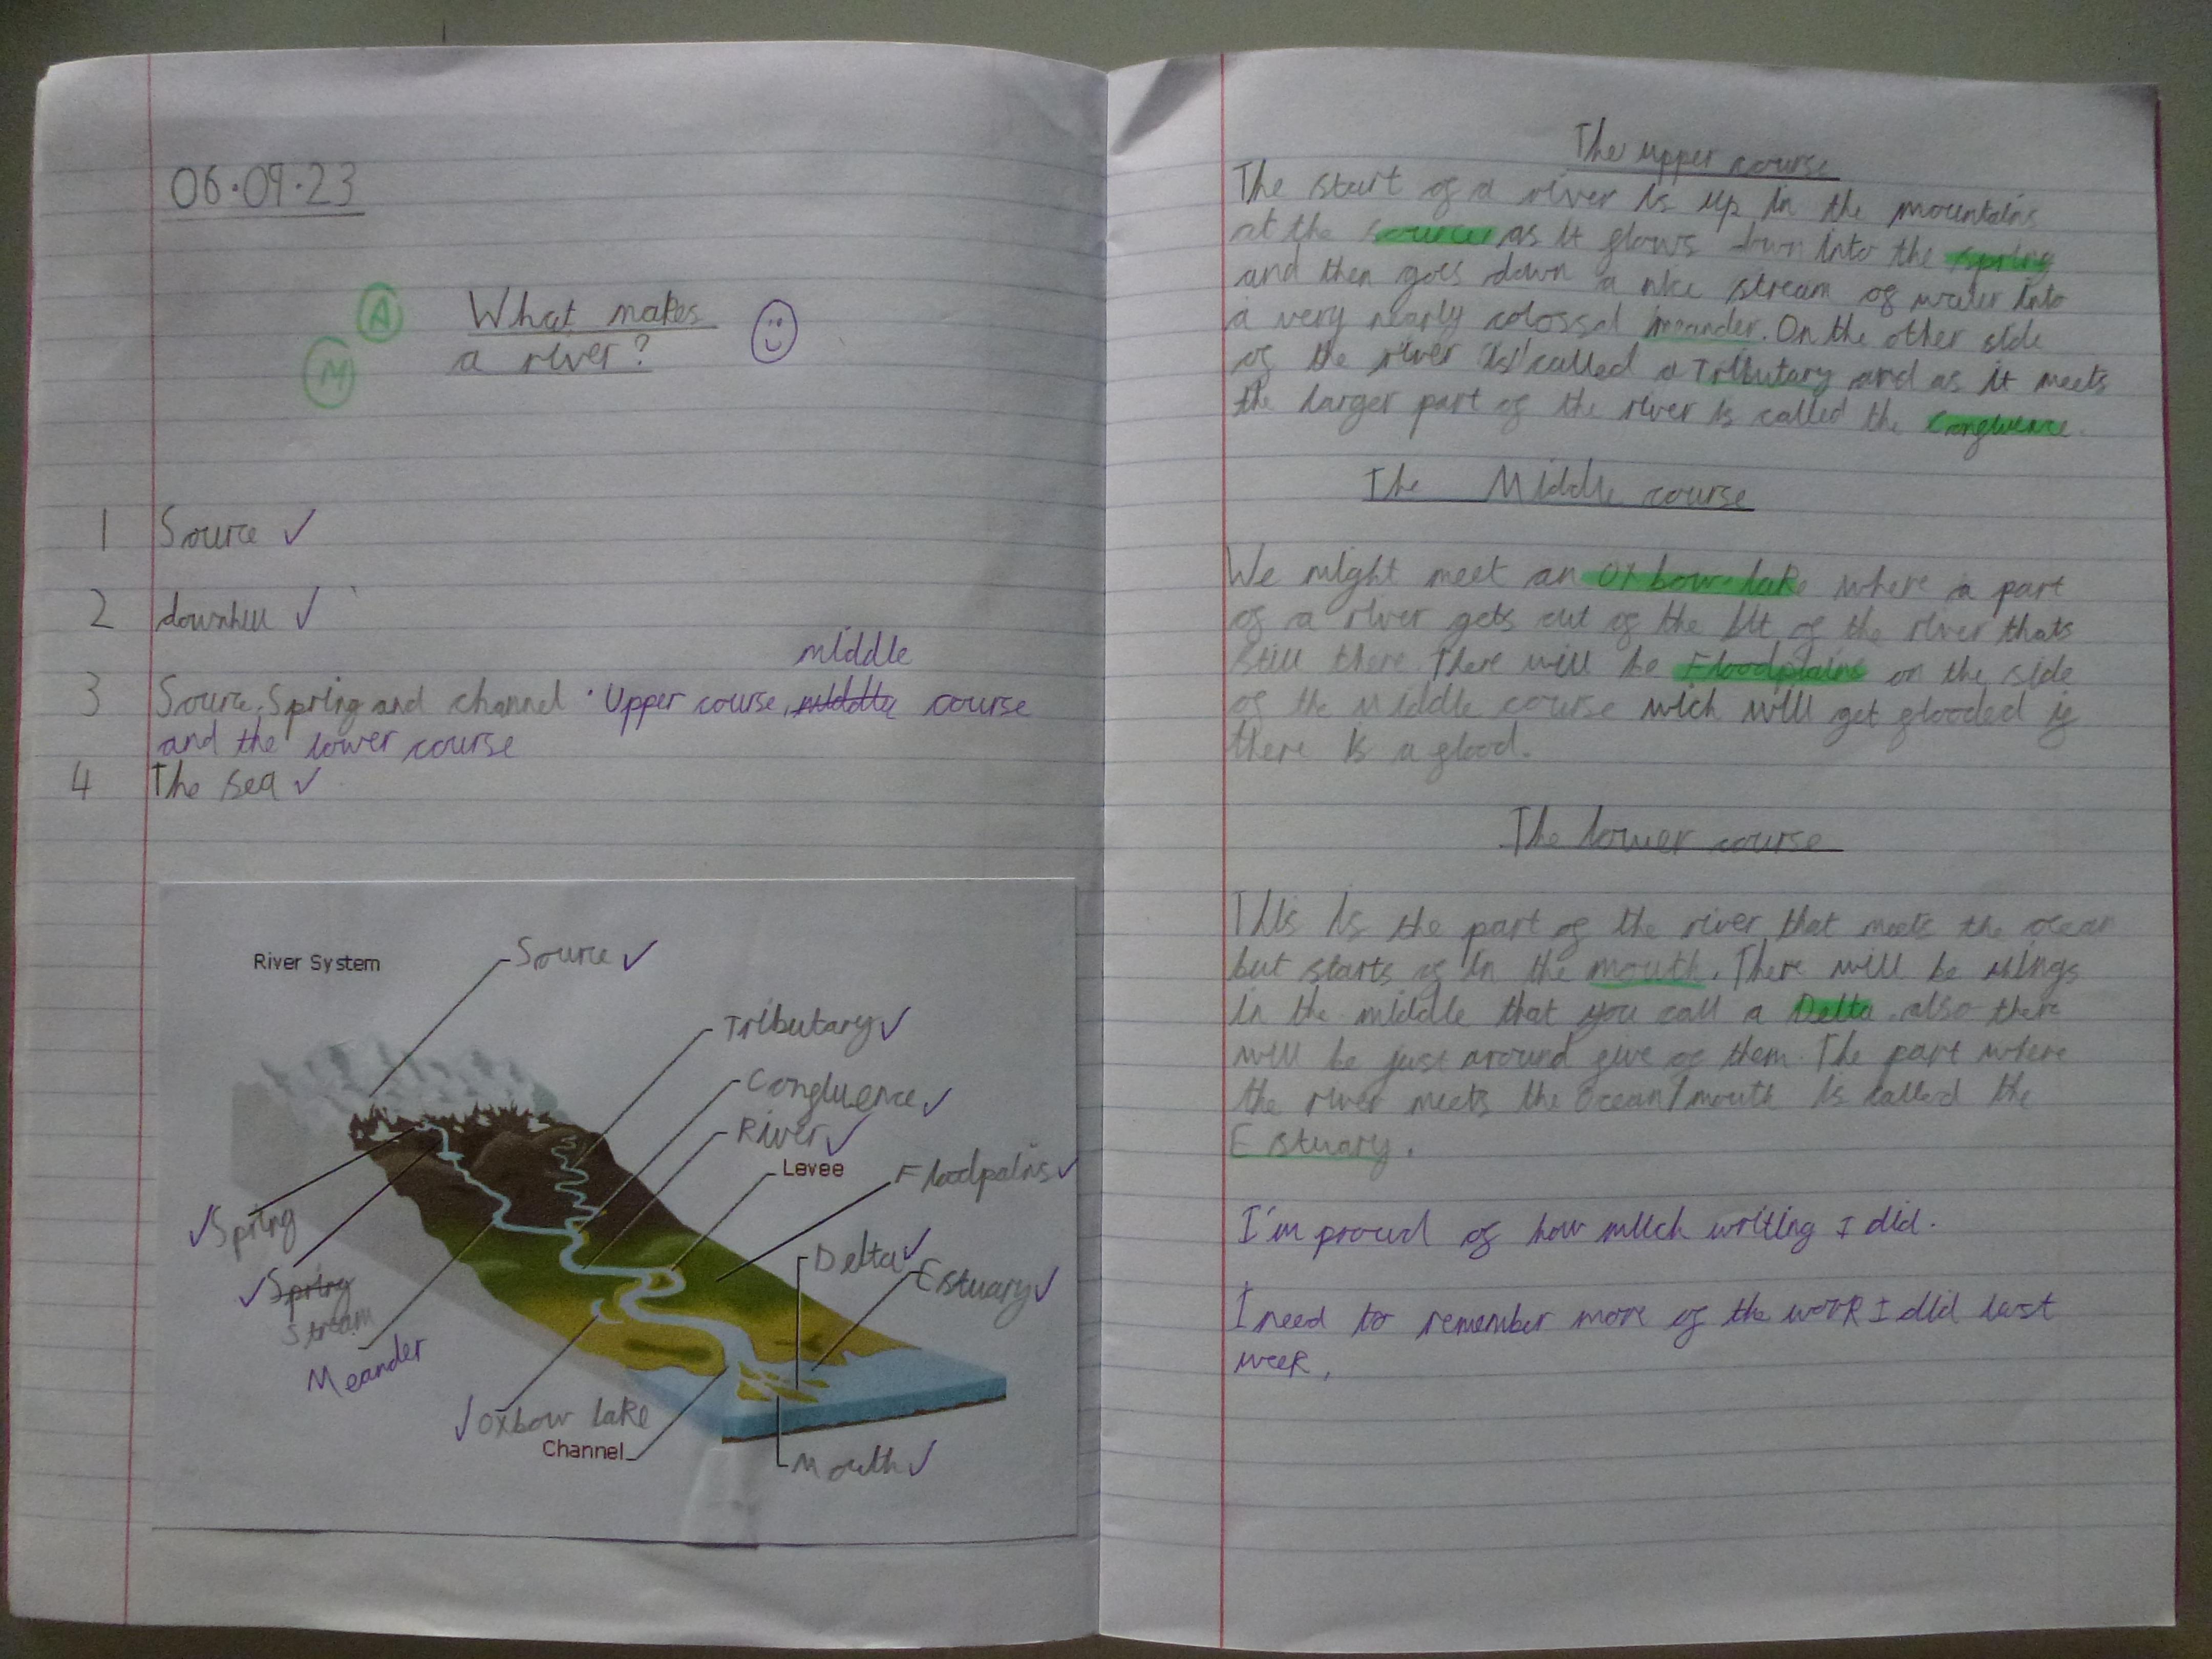 06.09.23
A
What makes
M
a river?
1 Source ✓
2 downhill ✓
middle
3 Source, Spring and channel · Upper course, middle course
and the lower course
4 The sea ✓
River System
Source ✓
Tributary ✓
Confluence ✓
River ✓
Levee
Floodpalins ✓
✓ Spring
Delta ✓
Estuary ✓
✓ Spring
Stream
Meander
✓ Oxbow lake
Channel
Mouth ✓
The upper course
The start of a river is up in the mountains
at the source as it flows down into the spring
and then goes down a nice stream of water into
a very nearly colossal meander. On the other side
of the river is called a Tributary and as it meets
the larger part of the river is called the Confluence.
The Middle course
We might meet an Oxbow lake where a part
of a river gets cut of the bit of the river thats
still there. There will be Floodplains on the side
of the middle course wich will get flooded if
there is a flood.
The lower course
This is the part of the river that meets the ocean
but starts of in the mouth. There will be things
in the middle that you call a Delta also there
will be just around five of them. The part where
the river meets the Ocean/mouth is called the
Estuary.
I'm proud of how much writing I did.
I need to remember more of the work I did last
week.